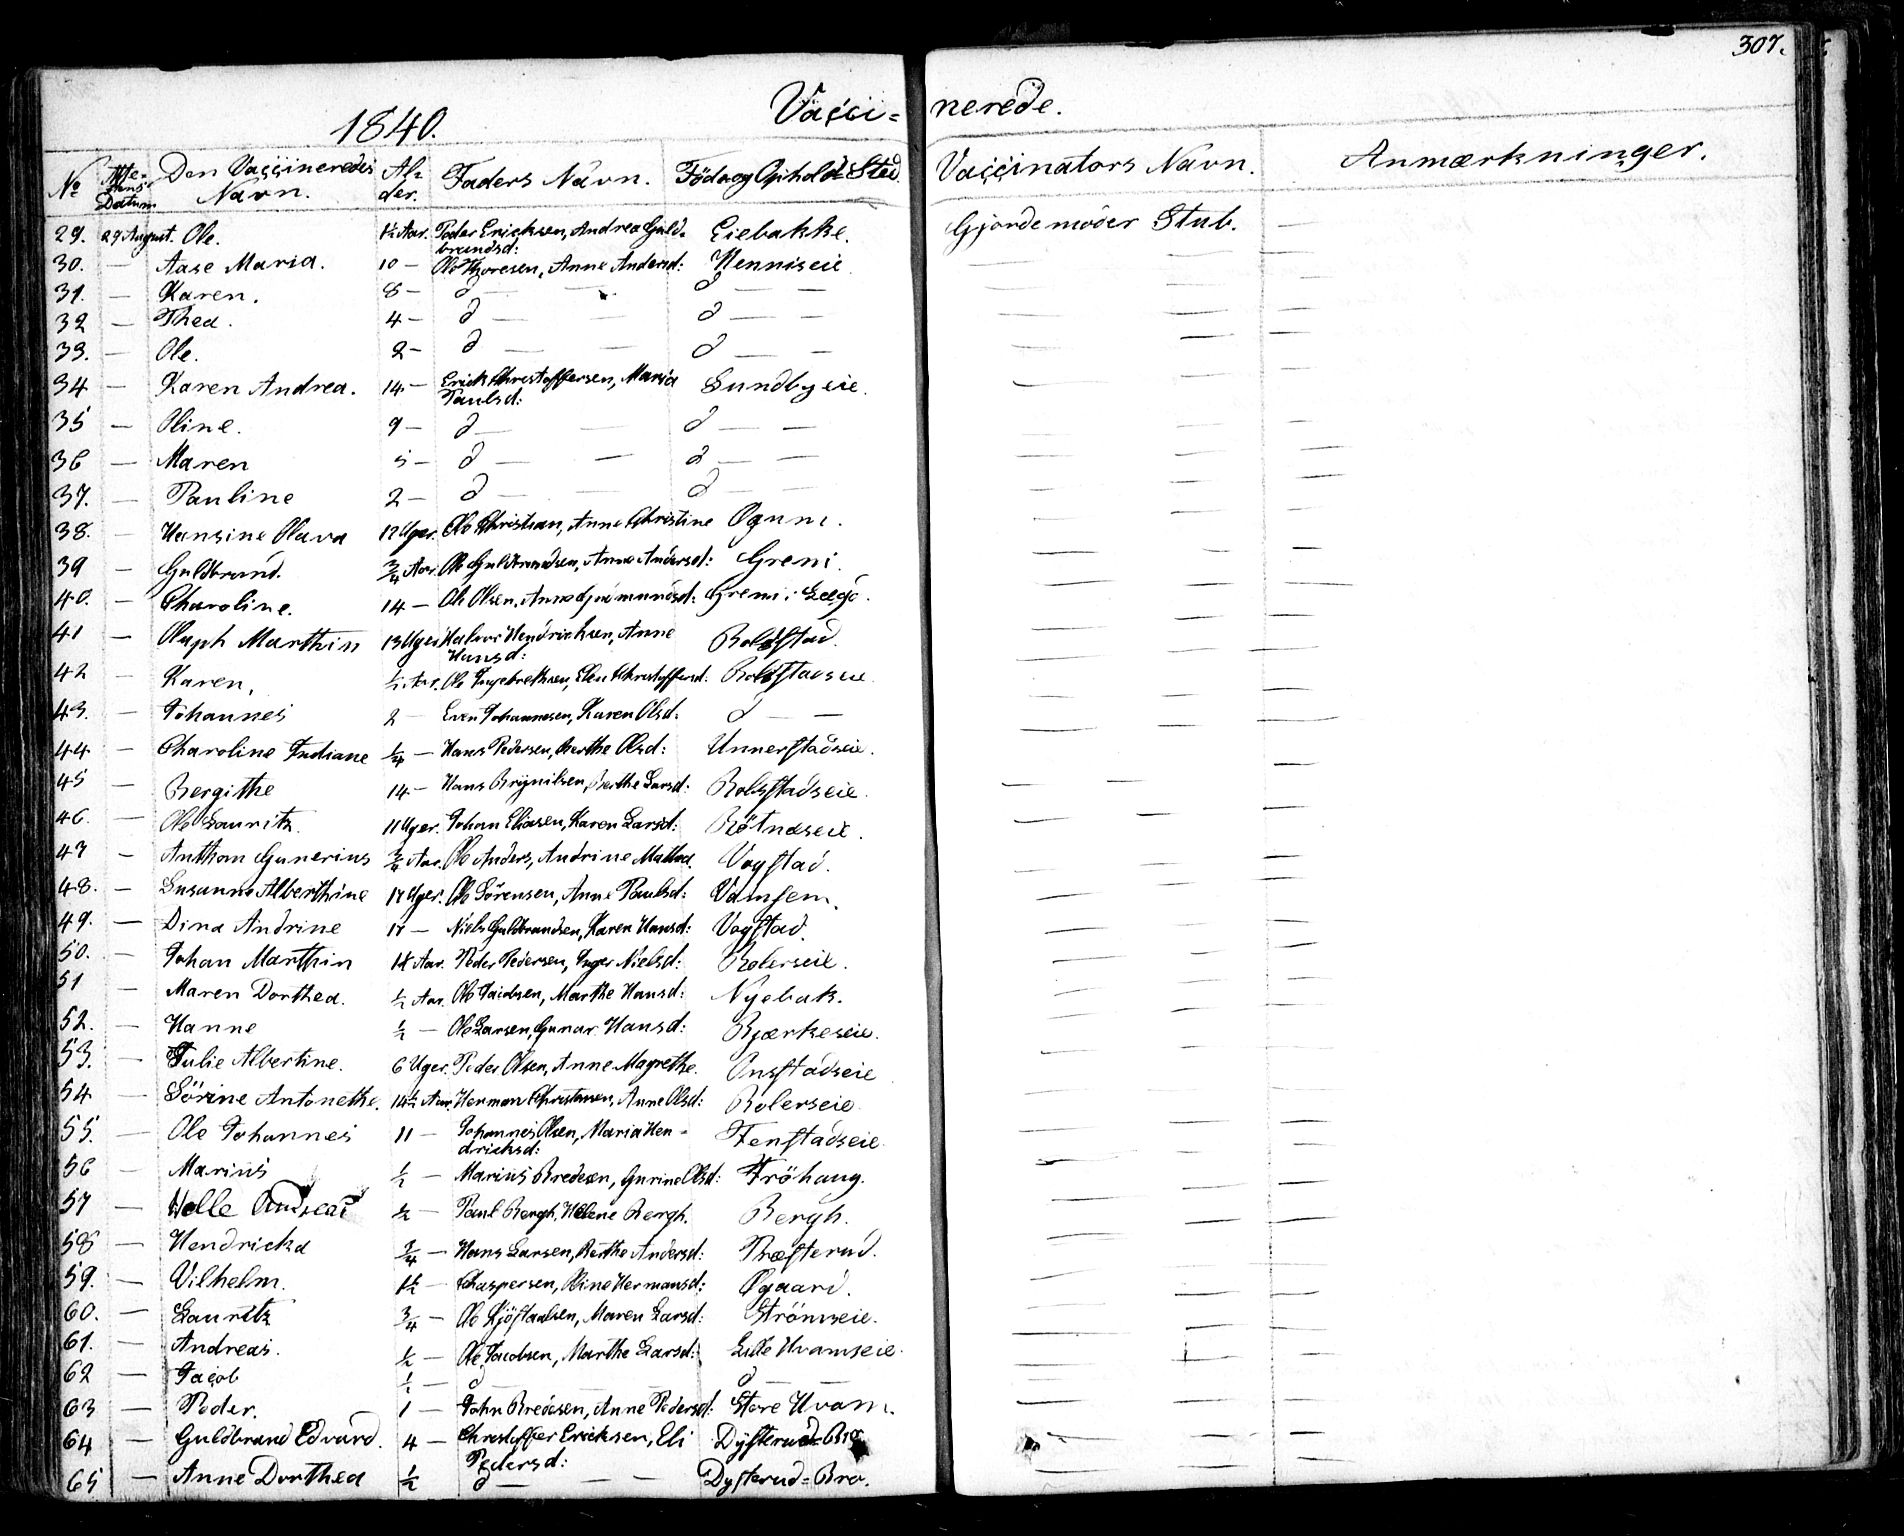 307.
1840. Vacci= nerede.
No Atte- stens Datum Den Vaccineredes Navn. Al- der. Faders Navn. Föde og Ophold Sted. Vaccinators Navn. Anmærkninger.
29. 29 August. Ole. 1½ Aar. Peder Ericksen, Andrea Guld- Eiebakke. Gjordemoder Stub. —
brandsd:
30. — Aase Maria. 10 — Ole Thoresen, Anne Andersd: Henniseie — — —
31. — Karen. 8 — d — — d — — — — —
32 — Thea. 4 — d — — d — — — — —
33. — Ole. 2 — d — — d — — — — —
34 — Karen Andrea. 14 — Erick Christoffersen, Maria Sundbyeie. — — —
Paulsd:
35 — Oline. 9 — d — — d — — — — —
36 — Maren 5 — d — — d — — — — —
37. — Pauline 2 — d — — d — — — — —
38. — Hansine Olava 12 Uger. Ole Christian, Anne Christine Ogum. — — —
39 — Guldbrand. ¾ Aar. Ole Guldbrandsen, Anne Andersd: Greni. — — —
40. — Charoline. 14 — Ole Olsen, Anne Gudmundsd: Greni: — — —
41 — Olaph Marthin 13 Uger Halvor Hendricksen, Anne Rolsstad. — — —
Hansd:
42 — Karen, ½ Aar. Ole Ingebrethsen, Elen Christoffersd: Rolsstadseie — — —
43. — Johannes 2 — Even Johannesen, Karen Olsd: d — — — — —
44 — Charoline Indiane ¼ — Hans Pedersen, Berthe Olsd: Unnerstadseie. — — —
45 — Bergithe 14 — Hans Brynilsen, Berthe Larsd: Rolsstadseie. — — —
46. — Ole Lauritz. 11 Uger. Johan Eliasen, Karen Larsd: Rötnæseie. — — —
47 — Anthon Gunerius ¾ Aar. Ole Anders, Andrine Vogstad. — — —
48. — Susanne Alberthine 17 Uger. Ole Sörensen, Anne Paulsd: Vamsem. — — —
49. — Dina Andrine 17 — Niels Guldbrandsen, Karen Hansd: Vogstad. — — —
50. — Johan Marthin 1¼ Aar. Peder Pedersen, Inger Nielsd: Rolerseie. — — —
51 — Maren Dorthea. ½ Aar. Ole Jacobsen, Marthe Hansd: Nyebak. — — —
52. — Hanne ½ — Ole Larsen, Gunor Hansd: Bjærkeseie. — — —
53. — Julie Albertine. 6 Uger. Peder Olsen, Anne Magrethe. Onstadseie — — —
54 — Sörine Antonethe. 14½ Aar. Herman Christensen, Anne Olsd: Rolerseie. — — —
55. — Ole Johannes 11 — Johannes Olsen, Maria Hen- Fenstadseie. — — —
dricksd:
56 — Marius ½ — Marius Bredesen, Gurine Olsd: Fröhaug. — — —
57 — Helle Andreas ½ — Paul Bergh, Helene Bergh. Bergh. — — —
58 — Hendricka ¾ — Hans Larsen, Berthe Andersd: Præsterud. — — —
59. — Vilhelm. 1½ — Chaspersen, Oline Hermansd: Ogaard. — — —
60. — Lauritz ¾ — Ole Kjöstadsen, Maren Larsd: Strömseie. — — —
61. — Andreas. ½ — Ole Jacobsen, Marthe Larsd: Lille Hvamseie. — — —
62 — Jacob ½ — d — — d — — — — —
63 — Peder. 1 — John Bredesen, Anne Pedersd: Store Hvam. — — —
64 — Guldbrand Edvard. 4 — Christoffer Ericksen, Eli Dysterud=Bro — — —
Pedersd:
65 — Anne Dorthea ½ d — — Dysterud=Bro. — — —